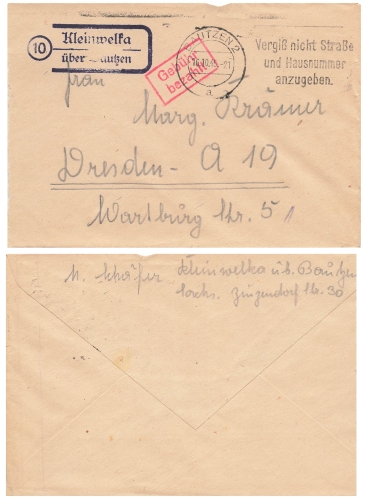 10
Kleinwelka
über Bautzen
Gebühr
bezahlt
BAUTZEN 2
a
Vergiß nicht Straße
und Hausnummer
anzugeben.
Frau
Marg. Krämer
Dresden - A 19
Wartburg Str. 51
M. Schäfer Kleinwelka üb. Bautzen
Sachs. Zinzendorf Pl. 30